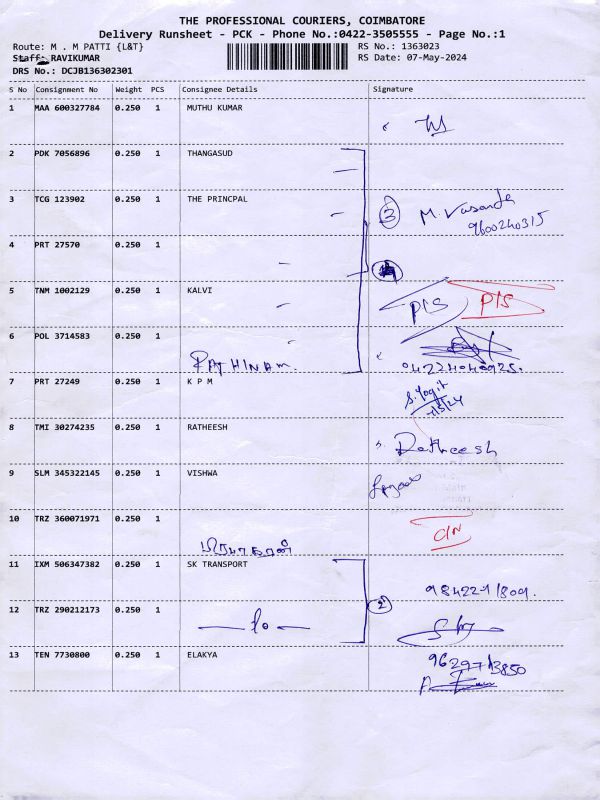 THE PROFESSIONAL COURIERS, COIMBATORE
Delivery Runsheet - PCK - Phone No.:0422-3505555 - Page No.:1
Route: M . M PATTI {L&T}
RS No.: 1363023
Staff: RAVIKUMAR
RS Date: 07-May-2024
DRS No.: DCJB136302301
S No Consignment No Weight PCS Consignee Details Signature
1 MAA 600327784 0.250 1 MUTHU KUMAR
2 PDK 7056896 0.250 1 THANGASUD
3 TCG 123902 0.250 1 THE PRINCPAL
3 M. Vasanda
9600240315
4 PRT 27570 0.250 1
5 TNM 1002129 0.250 1 KALVI
P/S P/S
6 POL 3714583 0.250 1
RATHINAM
04224040925.
7 PRT 27249 0.250 1 K P M
S. Yogit
7/5/24
8 TMI 30274235 0.250 1 RATHEESH
Ratheesh
9 SLM 345322145 0.250 1 VISHWA
10 TRZ 360071971 0.250 1
C/N
11 IXM 506347382 0.250 1 SK TRANSPORT
98422-1/809.
12 TRZ 290212173 0.250 1
2
13 TEN 7730800 0.250 1 ELAKYA
96297 13850